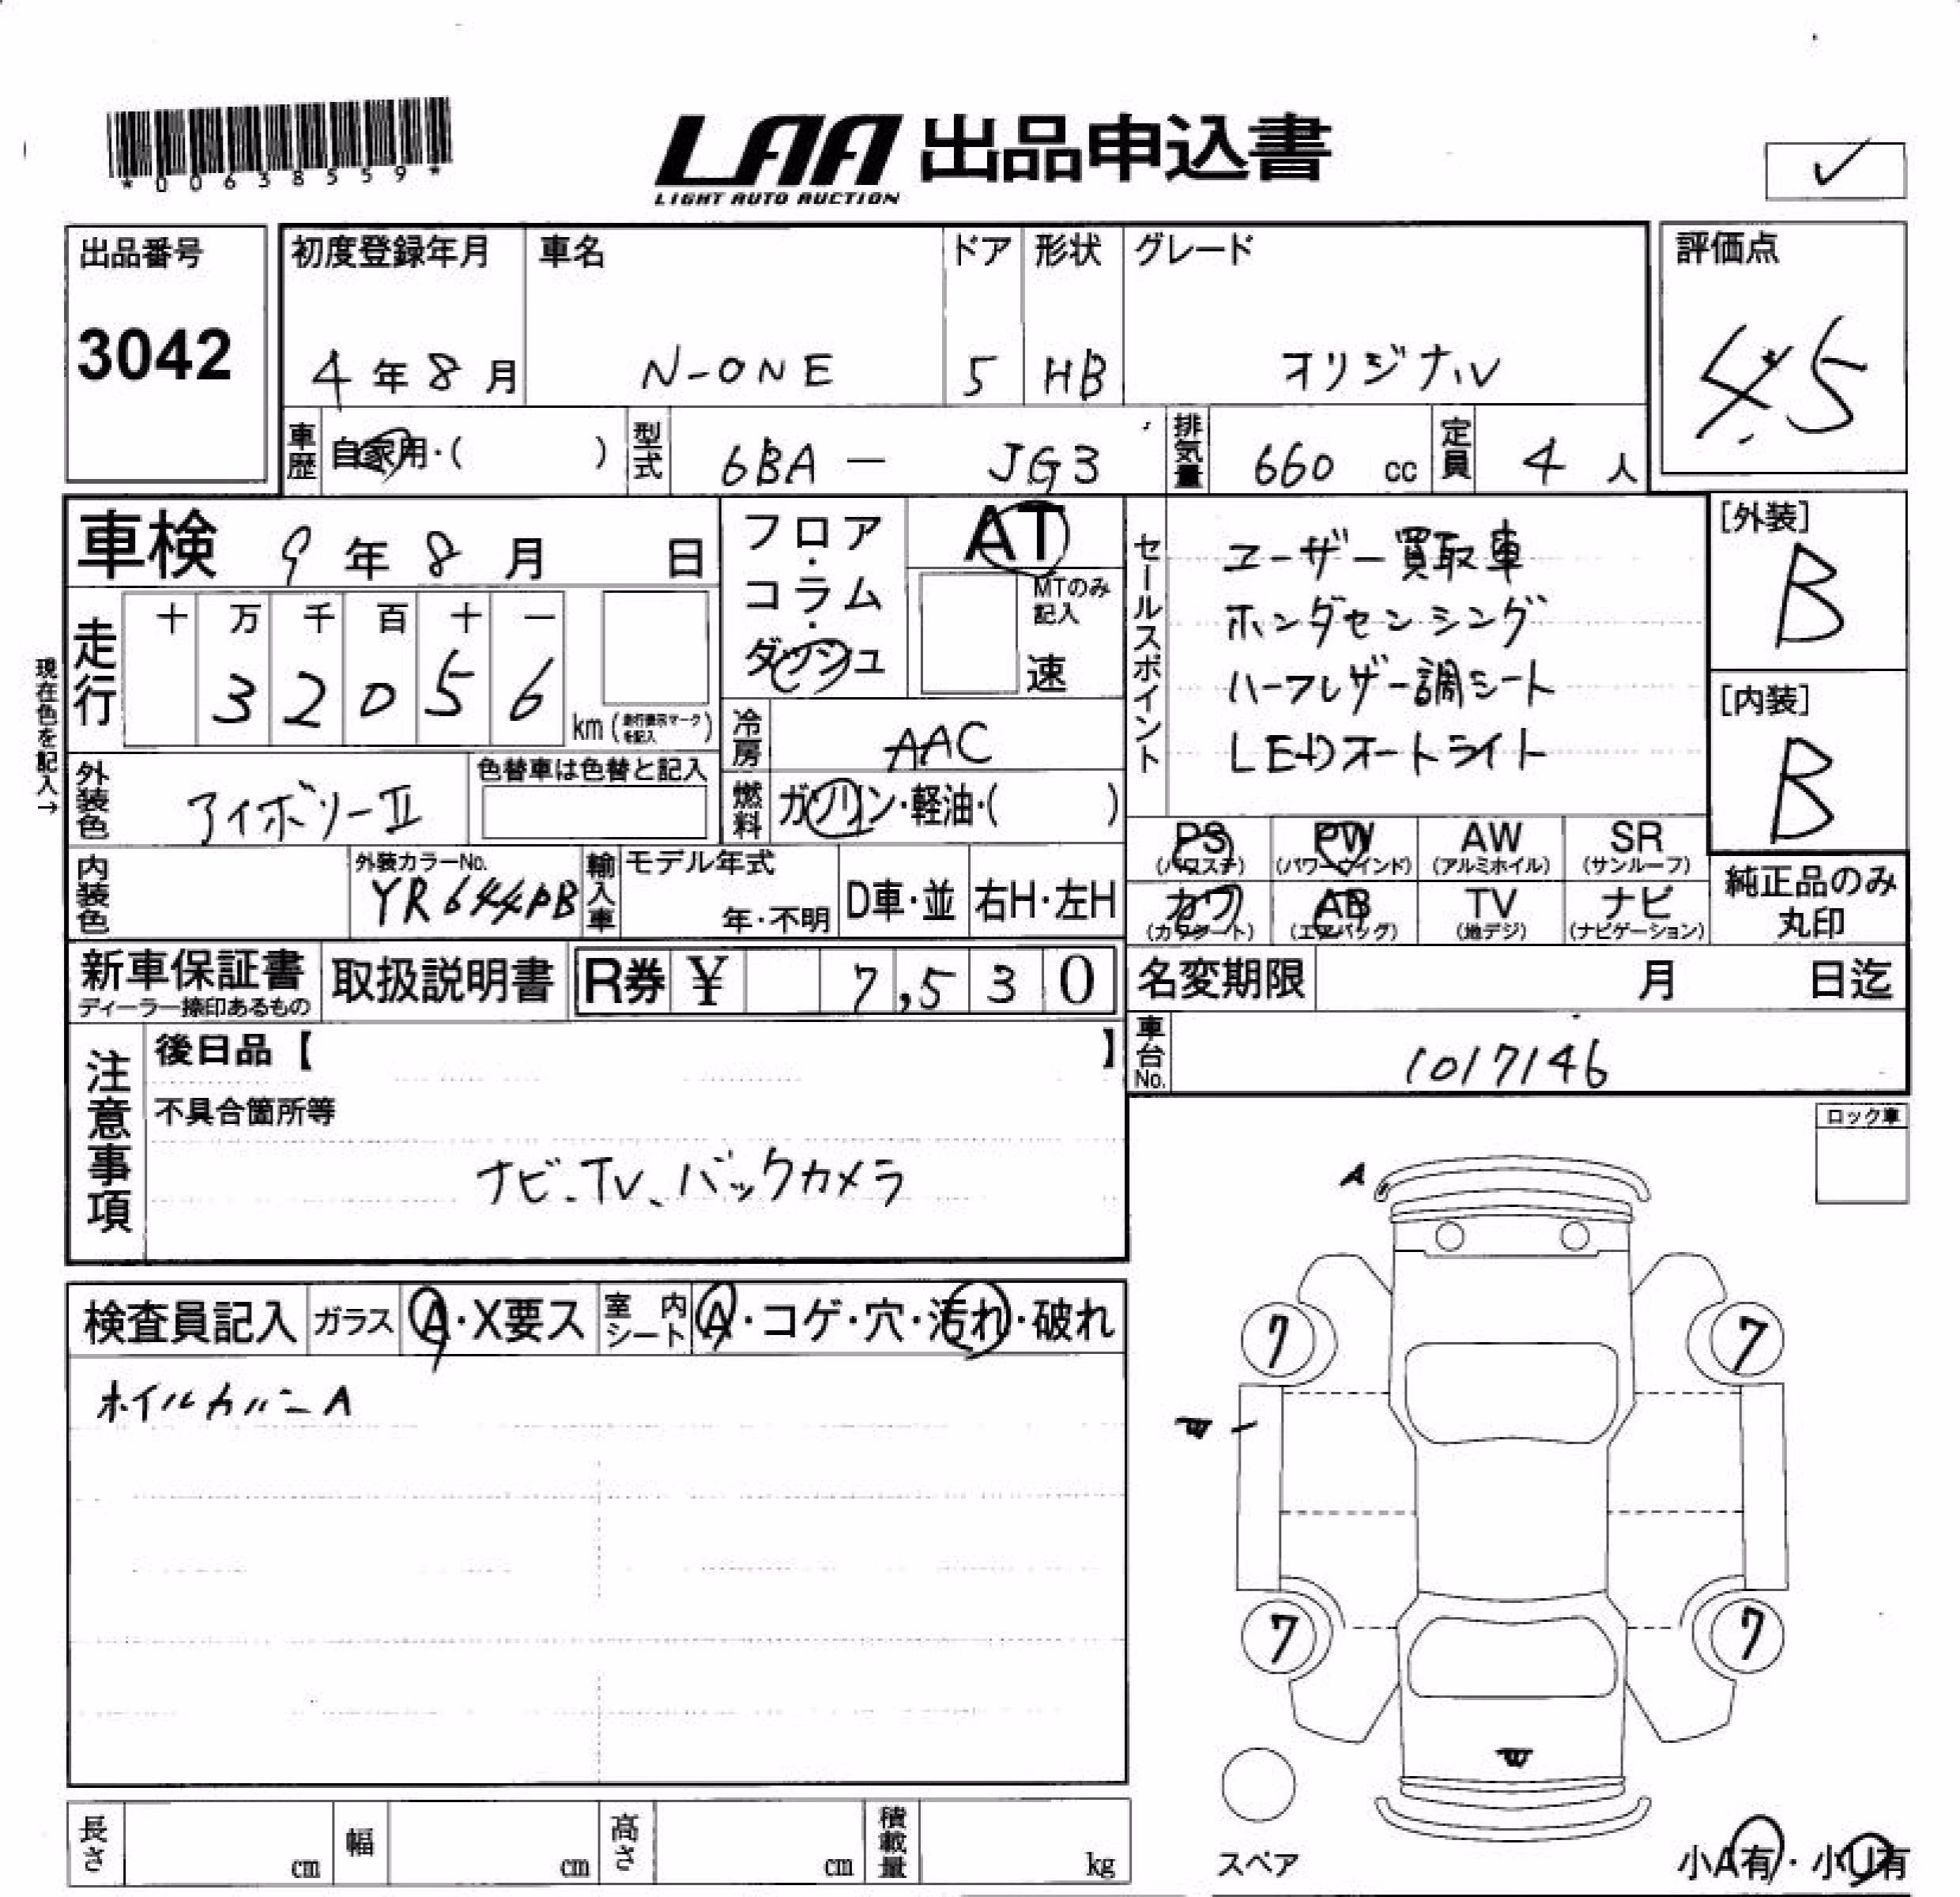 *00638559*
LAA 出品申込書
LIGHT AUTO AUCTION
✓
出品番号
3042
初度登録年月
4年8月
車名
N-ONE
ドア
5
形状
HB
グレード
オリジナル
評価点
4.5
車歴
自家用・( )
型式
6BA - JG3
排気量
660 cc
定員
4 人
車検 9年8月 日
フロア・コラム・ダッシュ
AT
MTのみ記入
速
セールスポイント
ユーザー買取車
ホンダセンシング
ハーフレザー調シート
LEDオートライト
[外装]
B
[内装]
B
現在色を記入→
走行
十 万 千 百 十 一
3 2 0 5 6
km (走行表示マークを記入)
冷房
AAC
外装色
アイボリーII
色替車は色替と記入
燃料
ガソリン・軽油・( )
PS
(パワステ)
PW
(パワーウインド)
AW
(アルミホイル)
SR
(サンルーフ)
カワ
(カワシート)
AB
(エアバッグ)
TV
(地デジ)
ナビ
(ナビゲーション)
純正品のみ
丸印
内装色
外装カラーNo.
YR644PB
輸入車
モデル年式
年・不明
D車・並
右H・左H
新車保証書
ディーラー捺印あるもの
取扱説明書
R券 ¥ 7,530
名変期限 月 日迄
車台No.
1017146
注意事項
後日品【 】
不具合箇所等
ナビ、TV、バックカメラ
ロック車
A
検査員記入
ガラス
A・X要ス
室内シート
A・コゲ・穴・汚れ・破れ
ホイルカバーA
7
7
7
7
スペア
小A有・小U有
長さ cm
幅 cm
高さ cm
積載量 kg